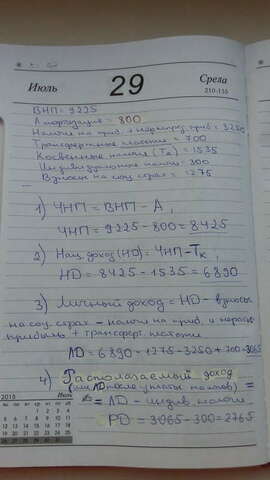 Июль
29
Среда
210-155
ВНП = 9225
Амортизация = 800
Налоги на приб. + нераспр приб = 3250
Трансфертные платежи = 700
Косвенные налоги (Тк) = 1535
Индивидуальные налоги = 300
Взносы на соц страх = 1275
1) ЧНП = ВНП - А,
ЧНП = 9225 - 800 = 8425
2) Нац. доход (НО) = ЧНП - Тк
НD = 8425 - 1535 = 6890
3) Личный доход = НD - взносы
на соц. страх - налоги на приб. и нерасп
прибыль + трансферт. платежи
ЛD = 6890 - 1275 - 3250 + 700 = 3065
4) Располагаемый доход
(или ЛD после уплаты налогов) =
= ЛD - индив. налоги
РD = 3065 - 300 = 2765
2015
Июль